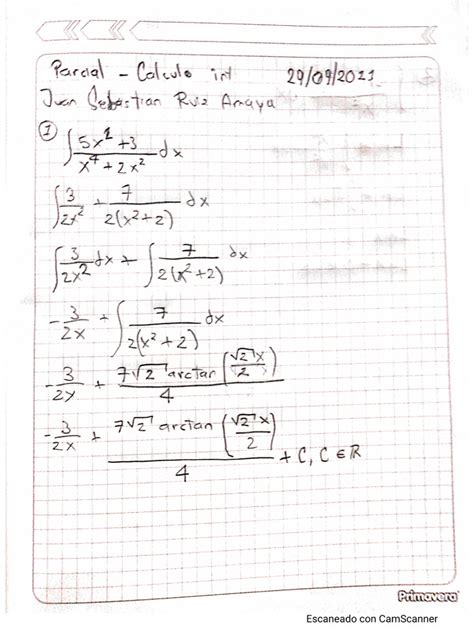 Parcial - Calculo int 29/09/2021
Juan Sebastian Ruiz Amaya
① ∫ (5x²+3)/(x⁴+2x²) dx
∫ 3/(2x²) + 7/(2(x²+2)) dx
∫ 3/(2x²) dx + ∫ 7/(2(x²+2)) dx
-3/(2x) + ∫ 7/(2(x²+2)) dx
-3/(2x) + (7√2 arctan(√2x/2))/4
-3/(2x) + (7√2 arctan(√2x/2))/4 + C, C∈ℝ
Primavera
Escaneado con CamScanner